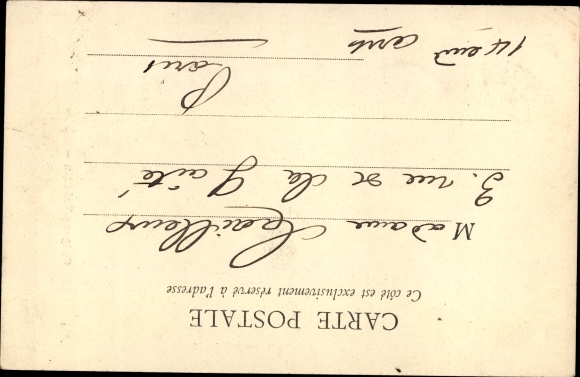 CARTE POSTALE
Ce côté est exclusivement réservé à l'adresse
Madame
3. rue de la Gaîté
Paris
14